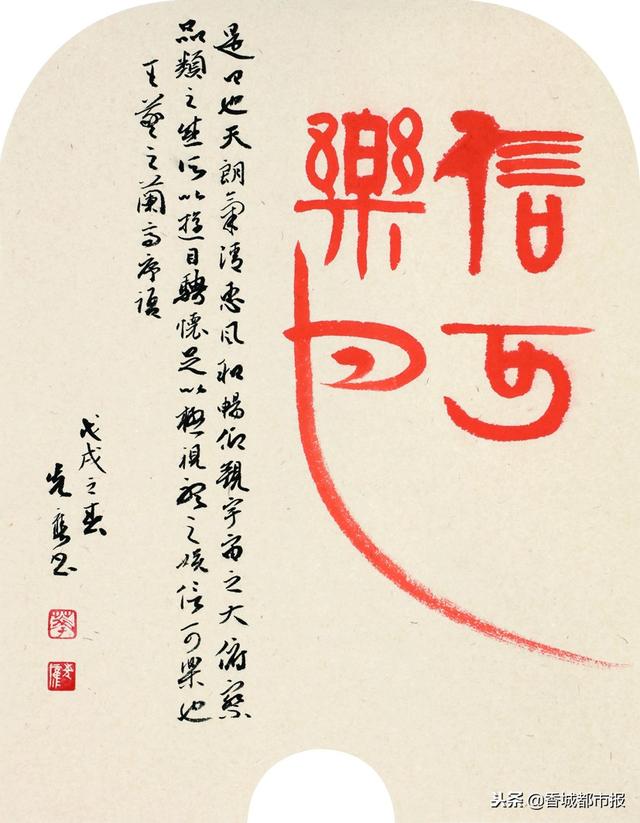 信可
樂也
是日也天朗氣清惠風和暢仰觀宇宙之大俯察
品類之盛所以遊目騁懷足以極視聽之娛信可樂也
王羲之蘭亭序語
戊戌之春
書
头条 @香城都市报